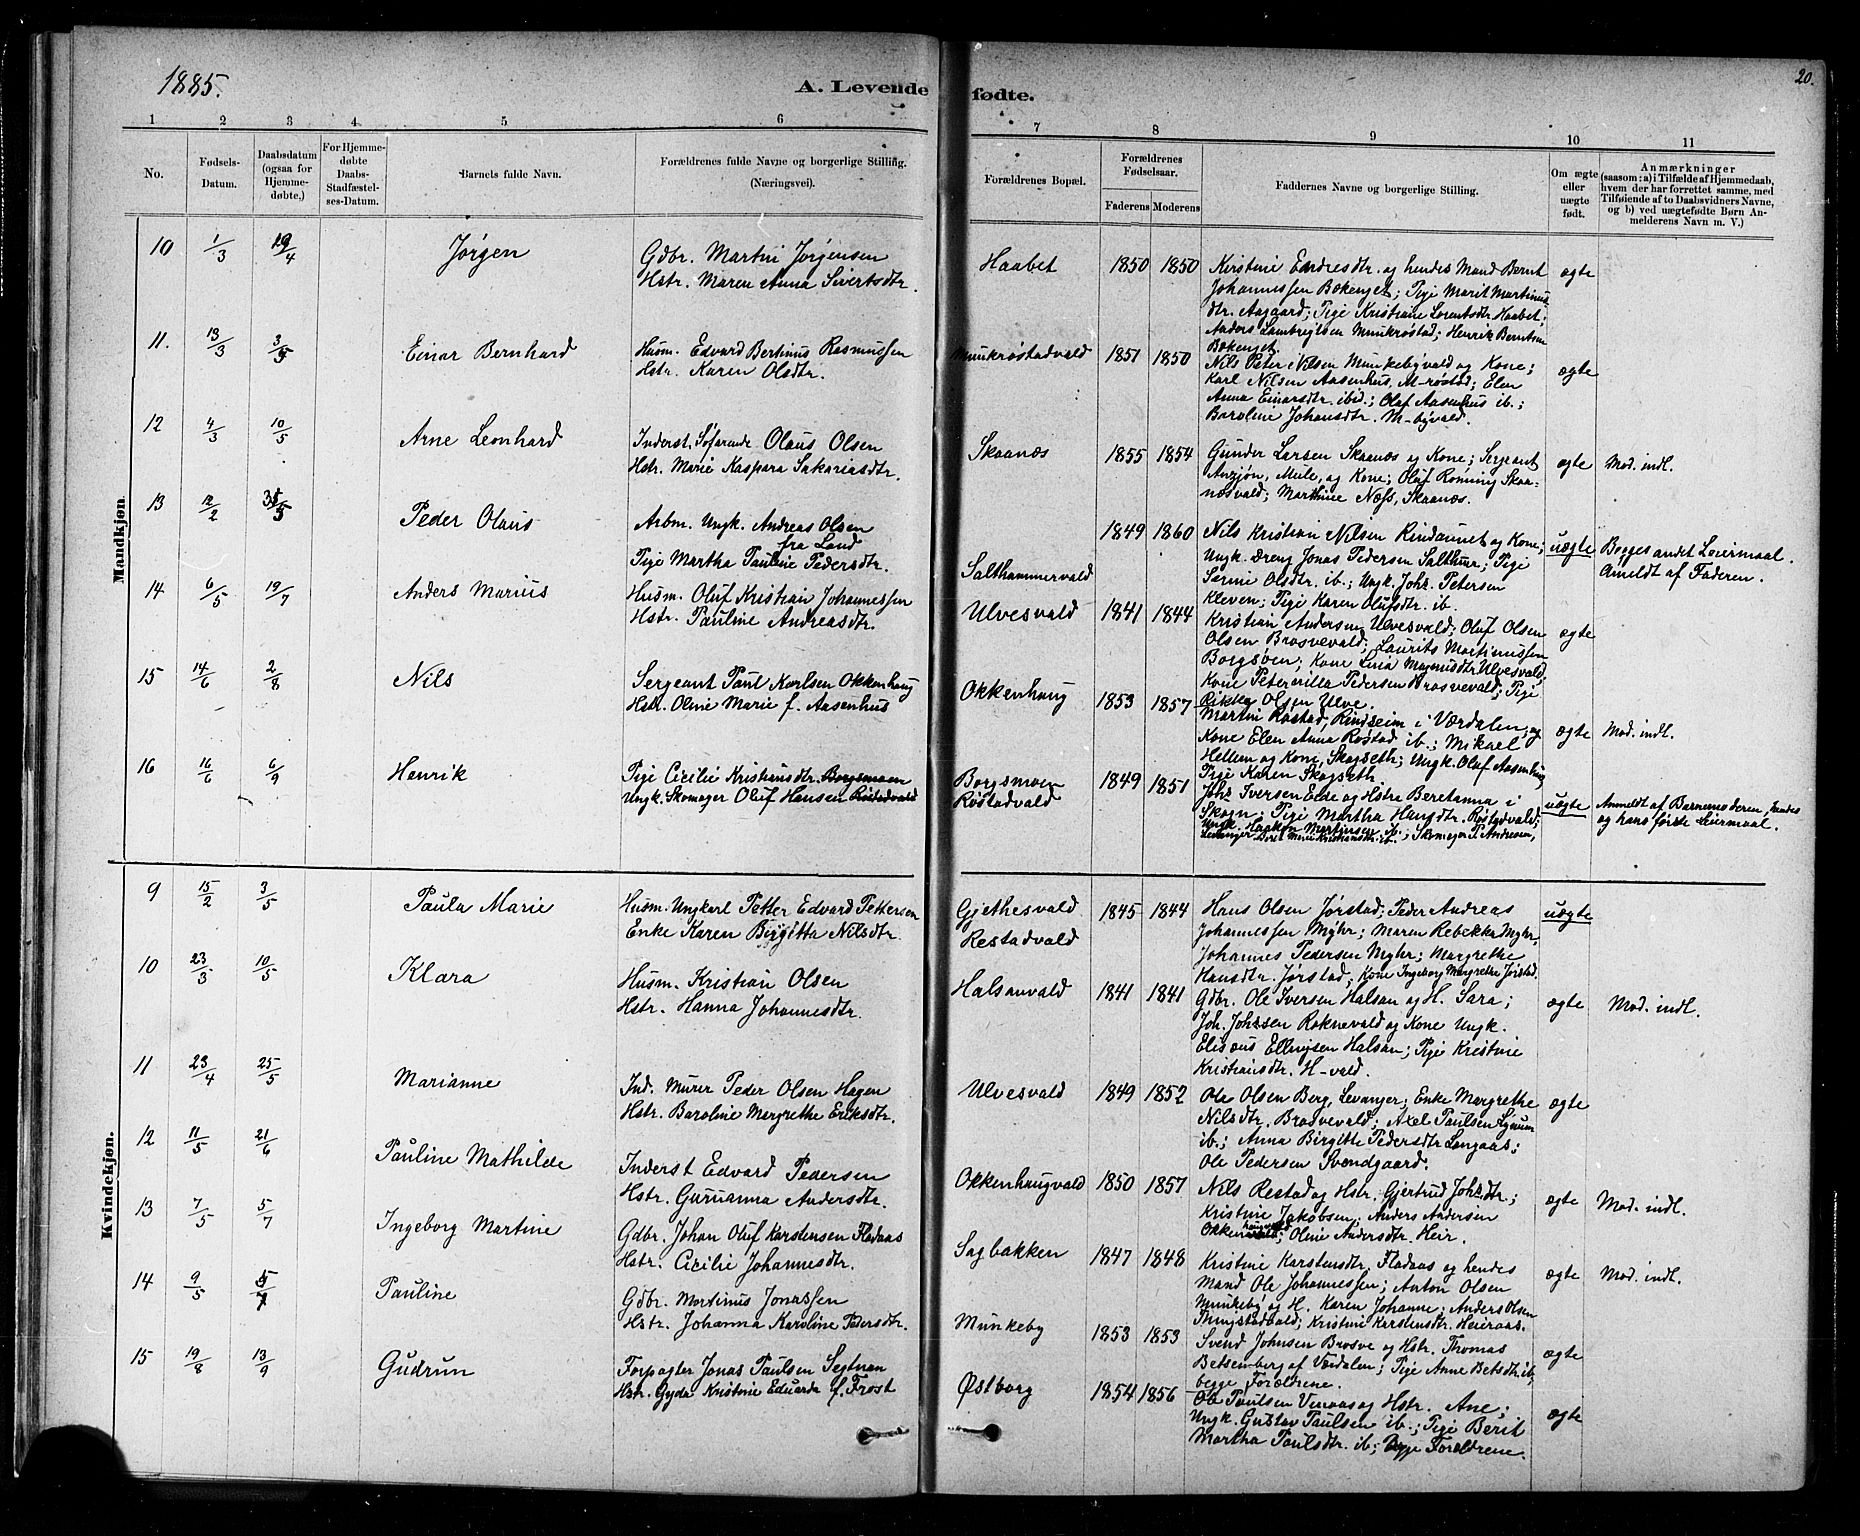 1885.
A. Levende fødte.
20.
1 2 3 4 5 6 7 8 9 10 11
No.
Fødsels-Datum.
Daabsdatum (ogsaa for Hjemmedøbte,)
For Hjemmedøbte Daabs-Stadfæstelses-Datum.
Barnets fulde Navn.
Forældrenes fulde Navne og borgerlige Stilling. (Næringsvei).
Forældrenes Bopæl.
Forældrenes Fødselsaar.
Faderens Moderens
Faddernes Navne og borgerlige Stilling.
Om ægte eller uægte født.
Anmærkninger
(saasom: a) i Tilfælde af Hjemmedaab,
hvem der har forrettet samme, med
Tilføiende af to Daabsvidners Navne,
og b) ved uægtefødte Børn Anmelderens Navn m. V.)
Mandkjøn.
10 1/3 19/4 Jørgen
Gdbr. Martin Jørgensen
Hstr. Maren Anna Sivertsdtr.
Haabet 1850 1850
Kirstine Endresdtr. og hendes Mand Bernt
Johannessen Bokenget; Pige Marit Martinus
dtr. Aagaard; Pige Kristiane Lorentsdtr. Haabet;
Anders Lambregtsen Munkrøstad; Henrik Berntsen
Bokenget.
ægte
11. 13/3 3/5 Einar Bernhard
Husm. Edvard Bertinus Rasmussen
Hstr. Karen Olsdtr.
Munkrøstadvald 1851 1850
Nils Peter Nilsen Munkebyvald og Kone;
Karl Nilsen Aasenhus, M-røstad; Elen
Anna Einarsdtr. ibid.; Olaf Aasenhus ib.;
Baroline Johansdtr. M-byvald.
ægte
12 4/3 10/5 Arne Leonhard
Inderst, Søfarende Olaus Olsen
Hstr. Marie Kaspara Sakariasdtr.
Skaanæs 1855 1854
Gunder Larsen Skaanæs og Kone; Sergeant
Anzjøn, Mule, og Kone; Oluf Rønning Skaanæsvald; Marthine Næss, Skaanæs.
ægte Mod. indl.
13 12/2 31/5 Peder Olaus
Arbm. Ungk. Andreas Olsen
fra Land
Pige Martha Pauline Pedersdtr.
Salthammervald 1849 1860
Nils Kristian Nilsen Rindaunet og Kone;
Ungk. Dreng Jonas Pedersen Salthmr; Pige
Serine Olsdtr. ib.; Ungk. Johs. Petersen
Kleven; Pige Karen Olufsdtr. ib.
uægte Begges andet Leiermaal.
Anmeldt af Faderen.
14 6/5 19/7 Anders Marius
Husm. Oluf Kristian Johannessen
Hstr. Pauline Andreasdtr.
Ulvesvald 1841 1844
Kristian Andersen Ulvesvald; Oluf Olsen
Olsen Brøsvevald; Laurits Martinussen
Borgsøen; Kone Lina Magnusdtr Ulvesvald;
Kone Peternilla Pedersen Brøsvevald; Pige
Rikke Olsen Ulve.
ægte
15 14/6 2/8 Nils
Sergeant Paul Karlsen Okkenhaug
Hstr. Oline Marie f. Aasenhus
Okkenhaug 1853 1857
Martin Røstad, Rindseim i Værdalen, og
Kone Elen Anna Røstad ib.; Mikael
Hellem og Kone, Skogseth; Ungk. Oluf Aasenhus;
Pige Karen Skogseth.
ægte Mod. indl.
16 16/6 6/9 Henrik
Pige Cicilie Kristiansdtr. Borgsmoen
Ungk. Skomager Oluf Hansen Røstadvald
Borgsmoen
Røstadvald 1849 1851
Johs Iversen Eide og Hstra Beretanna i
Skogn; Pige Martha Hansdtr. Røstadvald;
Ungk. Haakon Mortensen ib.; Skomager P. Andersen,
Levanger Boret Marie Kristiansdtr. ib.
uægte Anmeldt af Barnemoderen, hendes
og hans første Leiermaal.
Kvindekjøn.
9 15/2 3/5 Paula Marie
Husm. Ungkarl Petter Edvard Pettersen
Enke Karen Birgitta Nilsdtr.
Gjethesvald
Restadvald 1845 1844
Hans Olsen Jørstad; Peder Andreas
Johannessen Myhr; Maren Rebekka Myhr,
Johannes Pedersen Myhr; Margrethe
Hansdtr. Jørstad; Kone Ingeborg Margrethe Jørstad.
uægte
10 23/3 10/5 Klara
Husm. Kristian Olsen
Hstr. Hanna Johannesdtr.
Halsanvald 1841 1841
Gdbr. Ole Iversen Halsan og H. Sara;
Joh. Johssen Roknevald og Kone Ungk.
Elisæus Ellingsen Halsan; Pige Kristine
Kristiansdtr. H-vald.
ægte Mod. indl.
11 23/4 25/5 Marianne
Ind. Murer Peder Olsen Hagen
Hstr. Baroline Margrethe Eriksdtr.
Ulvesvald 1849 1852
Ole Olsen Berg, Levanger; Enke Margrethe
Nilsdtr. Brøsvevald; Axel Paulsen Lynum
ib.; Anna Birgitte Pedersdtr Langaas;
Ole Pedersen Svendgaard.
ægte
12 11/5 21/6 Pauline Mathilde
Inderst Edvard Pedersen
Hstr. Guruanna Andersdtr.
Okkenhaugvald 1850 1857
Nils Restad og Hstr. Gjertrud Johsdtr;
Kristine Jakobsen; Anders Andersen
Okkenhaugvald; Oline Andersdtr. Heir.
ægte Mod. indl.
13 7/5 5/7 Ingeborg Martine
Gdbr. Johan Oluf Karstensen Fladaas
Hstr. Cicilie Johannesdtr.
Sagbakken 1847 1848
Kristine Karstensdtr. Fladaas og hendes
Mand Ole Johannessen; Anton Olsen
Munkeby og H. Karen Johanne; Anders Olsen
Thingstadvald; Kristine Karstensdtr. Heiraas.
ægte Mod. indl.
14 9/5 5/7 Pauline
Gdbr. Martinus Jonassen
Hstr. Johanna Karoline Pedersdtr.
Munkeby 1853 1853
Svend Johnsen Brøsve og Hstr. Thomas
Betsenberg af Værdalen; Pige Anne Betsdtr ib,
begge Forældrene.
ægte
15 19/8 13/9 Gudrun
Forpagter Jonas Paulsen Segtnan
Hstr. Gyda Kristine Eduarda f. Frost
Østborg 1854 1856
Ole Paulsen Vinaas og Hstr. Ane;
Ungk. Gustav Paulsen ib.; Pige Berit
Martha Paulsdtr. ib; Begge Forældrene.
ægte